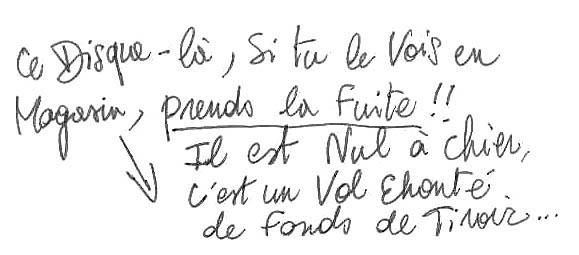 Ce Disque-là, Si tu le Vois en
Magasin, prends la Fuite !!
Il est Nul à chier,
c'est un Vol Ehonté
de Fonds de Tiroir...